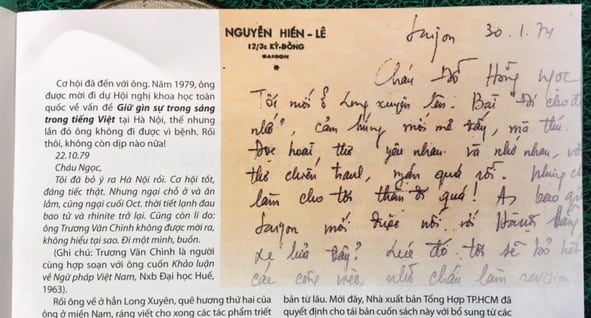 Cơ hội đã đến với ông. Năm 1979, ông
được mời đi dự Hội nghị khoa học toàn
quốc về vấn đề Giữ gìn sự trong sáng
trong tiếng Việt tại Hà Nội, thế nhưng
lần đó ông không đi được vì bệnh. Rồi
thôi, không còn dịp nào nữa!
22.10.79
Cháu Ngọc,
Tôi đã bỏ ý ra Hà Nội rồi. Cơ hội tốt,
đáng tiếc thật. Nhưng ngại chỗ ở và ăn
lắm, cũng ngại cuối Oct. thời tiết lạnh đau
bao tử và rhinite trở lại. Cũng còn lí do:
ông Trương Văn Chình không được mời ra,
không hiểu tại sao. Đi một mình, buồn.
(Ghi chú: Trương Văn Chình là người
cùng hợp soạn với ông cuốn Khảo luận
về Ngữ pháp Việt Nam, Nxb Đại học Huế,
1963).
Rồi ông về ở hẳn Long Xuyên, quê hương thứ hai của
ông ở miền Nam, ráng viết cho xong các tác phẩm triết
NGUYỄN HIẾN-LÊ
12/3c KỲ-ĐỒNG
SAIGON
Saigon 30.1.74
Cháu Đỗ Hồng Ngọc
Tôi mới ở Long xuyên lên. Bài "Đi cho
nhớ", cảm hứng mới mẻ đấy, mà thú.
Đọc hoài thơ yêu nhau và nhớ nhau,
thơ chiến tranh, ngán quá rồi.
làm cho tôi thèm đi quá! bao
Saigon mới được nối với Hà nội bằng
xe lửa đây? Lúc đó tôi sẽ bỏ hết
các công việc, nhờ cháu làm
bản từ lâu. Mới đây, Nhà xuất bản Tổng Hợp TP.HCM đã
quyết định cho tái bản cuốn sách này với bổ sung từ các